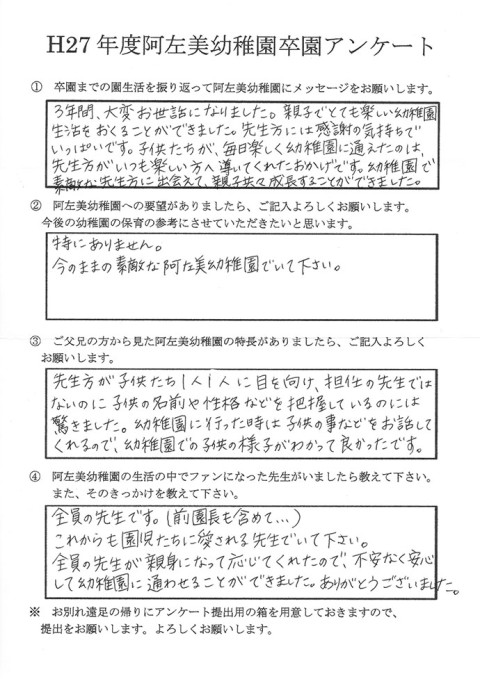 H27年度阿左美幼稚園卒園アンケート
① 卒園までの園生活を振り返って阿左美幼稚園にメッセージをお願いします。
3年間、大変お世話になりました。親子でとても楽しい幼稚園
生活をおくることができました。先生方には感謝の気持ちで
いっぱいです。子供たちが、毎日楽しく幼稚園に通えたのは、
先生方がいつも楽しい方へ導いてくれたおかげです。幼稚園で
素敵な先生方に出会えて、親子共々成長することができました。
② 阿左美幼稚園への要望がありましたら、ご記入よろしくお願いします。
今後の幼稚園の保育の参考にさせていただきたいと思います。
特にありません。
今のままの素敵な阿左美幼稚園でいて下さい。
③ ご父兄の方から見た阿左美幼稚園の特長がありましたら、ご記入よろしく
お願いします。
先生方が子供たち1人1人に目を向け、担任の先生では
ないのに子供の名前や性格などを把握しているのには
驚きました。幼稚園に行った時は子供の事などをお話して
くれるので、幼稚園での子供の様子がわかって良かったです。
④ 阿左美幼稚園の生活の中でファンになった先生がいましたら教えて下さい。
また、そのきっかけを教えて下さい。
全員の先生です。(前園長も含めて…)
これからも園児たちに愛される先生でいて下さい。
全員の先生が親身になって応じてくれたので、不安なく安心
して幼稚園に通わせることができました。ありがとうございました。
※ お別れ遠足の帰りにアンケート提出用の箱を用意しておきますので、
提出をお願いします。よろしくお願いします。